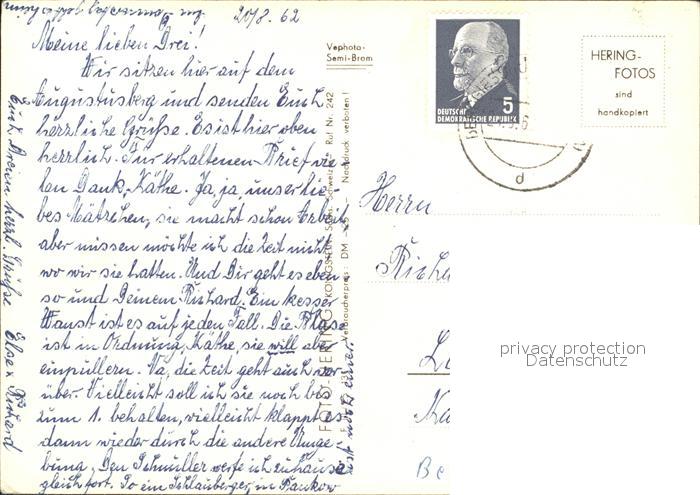 20/8. 62
Meine lieben Drei!
Wir sitzen hier auf dem
Augustusberg und senden Euch
herzliche Grüße. Es ist hier oben
herrlich. Für erhaltenen Brief vie-
len Dank, Käthe. Ja, ja, unser lie-
bes Mätzchen, sie macht schon Arbeit
aber missen möchte ich die Zeit nicht
wo wir sie hatten. Und Dir geht es eben-
so und Deinem Richard. Ein kesser
ist es auf jeden Fall. Die Blase
ist in Ordnung, Käthe, sie will aber
einpullern. Na, die Zeit geht auch vor-
über. Vielleicht soll ich sie noch bis
zum 1. behalten, vielleicht klappt es
dann wieder durch die andere Umge-
bung. Den Schnuller werfe ich zuhause
gleich fort. So ein Schlauberger, in Pankow
Euch Dreien herzl. Grüße Elsa Richard
Vephota-
Semi-Brom
FOTO-HERING, KÖNIGSTEIN, Sächs. Schweiz - Ruf Nr. 242
Verbraucherpreis: DM
Nachdruck verboten!
DEUTSCHE
DEMOKRATISCHE REPUBLIK
5
d
HERING-
FOTOS
sind
handkopiert
Herrn
Richa
privacy protection
Datenschutz